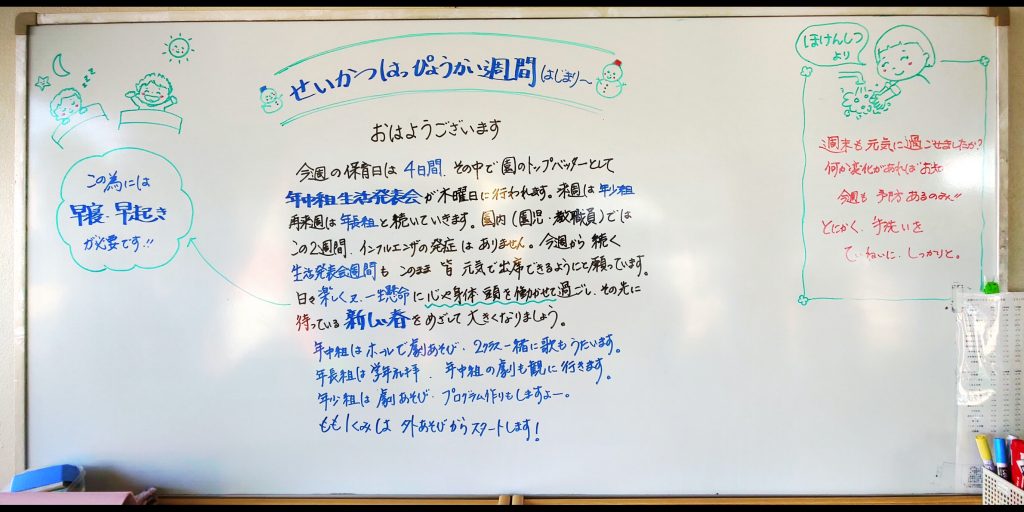 せいかつはっぴょうかい週間 はじまり〜
おはようございます
今週の保育日は 4日間、その中で園のトップバッターとして
年中組生活発表会が木曜日に行われます。来週は年少組
再来週は年長組と続いていきます。園内(園児・教職員)では
この2週間、インフルエンザの発症はありません。今週から続く
生活発表会週間も このまま 皆 元気で出席できるようにと願っています。
日々楽しく又、一生懸命に 心や身体・頭を働かせて過ごし、その先に
待っている 新しい春をめざして 大きくなりましょう。
年中組はホールで劇あそび・2クラス一緒に歌もうたいます。
年長組は学年礼拝、年中組の劇も観に行きます。
年少組は劇あそび・プログラム作りもしますよー。
もも1くみは 外あそびからスタートします!
zzz
この為には
早寝・早起き
が必要です!!
ほけんしつ
より
週末も元気に過ごせましたか?
何か変化があれば
今週も 予防あるのみ!!
とにかく、手洗いを
ていねいに、しっかりと。